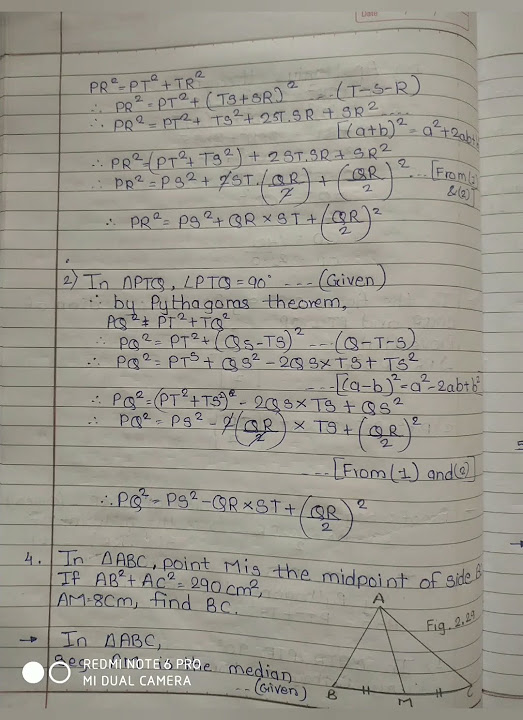 Date
PR²=PT²+TR²
∴ PR²=PT²+(TS+SR)² ---(T-S-R)
∴ PR²=PT²+TS²+2ST.SR+SR² ---
[(a+b)²=a²+2ab+
∴ PR²=(PT²+TS²)+2ST.SR+SR²
∴ PR²=PS²+2ST.(QR/2)+(QR/2)² ---[From(1)
&(2)]
∴ PR²=PS²+QR×ST+(QR/2)²
2) In △PTQ, ∠PTQ=90° ---(Given)
∴ by Pythagoras theorem,
PQ²=PT²+TQ²
∴ PQ²=PT²+(QS-TS)² ---(Q-T-S)
∴ PQ²=PT⁵+QS²-2QS×TS+TS²
---[(a-b)²=a²-2ab+b²
∴ PQ²=(PT²+TS²)²-2QS×TS+QS²
∴ PQ²=PS²-2(QR/2)×TS+(QR/2)²
---[From(1) and(2)]
∴ PQ²=PS²-QR×ST+(QR/2)²
4. In △ABC, point M is the midpoint of side B
If AB²+AC²=290cm²,
AM=8cm, find BC.
A
Fig. 2.29
→ In △ABC,
Seg AM is the median
---(Given)
B M C
REDMI NOTE 6 PRO
MI DUAL CAMERA